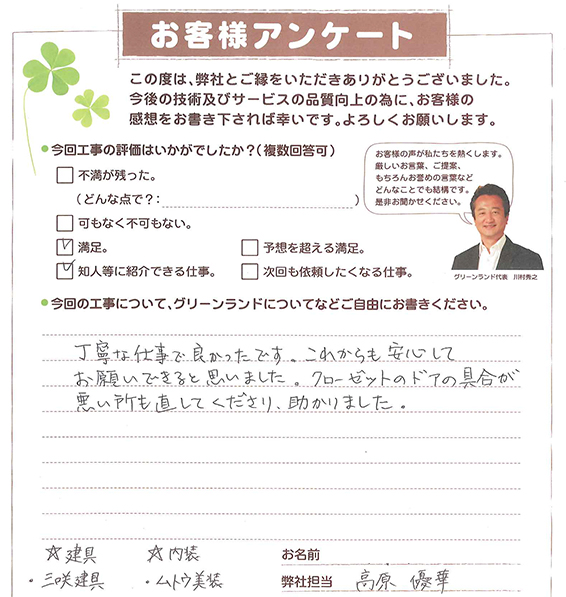 お客様アンケート
この度は、弊社とご縁をいただきありがとうございました。
今後の技術及びサービスの品質向上の為に、お客様の
感想をお書き下されば幸いです。よろしくお願いします。
●今回工事の評価はいかがでしたか?(複数回答可)
□ 不満が残った。
(どんな点で?: )
□ 可もなく不可もない。
☑ 満足。 □ 予想を超える満足。
☑ 知人等に紹介できる仕事。 □ 次回も依頼したくなる仕事。
お客様の声が私たちを熱くします。
厳しいお言葉、ご提案、
もちろんお誉めの言葉など
どんなことでも結構です。
是非お聞かせください。
グリーンランド代表 川村秀之
●今回の工事について、グリーンランドについてなどご自由にお書きください。
丁寧な仕事で良かったです。これからも安心して
お願いできると思いました。クローゼットのドアの具合が
悪い所も直してくださり、助かりました。
☆建具 ☆内装 お名前
・三咲建具 ・ムトウ美装 弊社担当 高原 優華